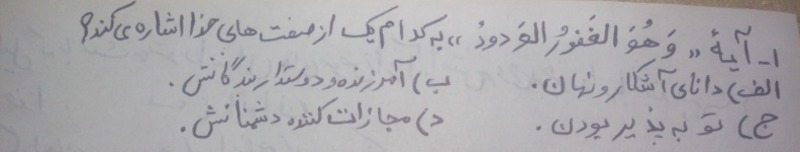 ۱- آیهٔ «وَهُوَ الغَفورُ الوَدودُ» به کدام یک از صفت های خدا اشاره می کند؟
الف) دانای آشکار و نهان. ب) آمرزنده و دوستدار بندگانش.
ج) توبه پذیر بودن. د) مجازات کننده دشمنانش.